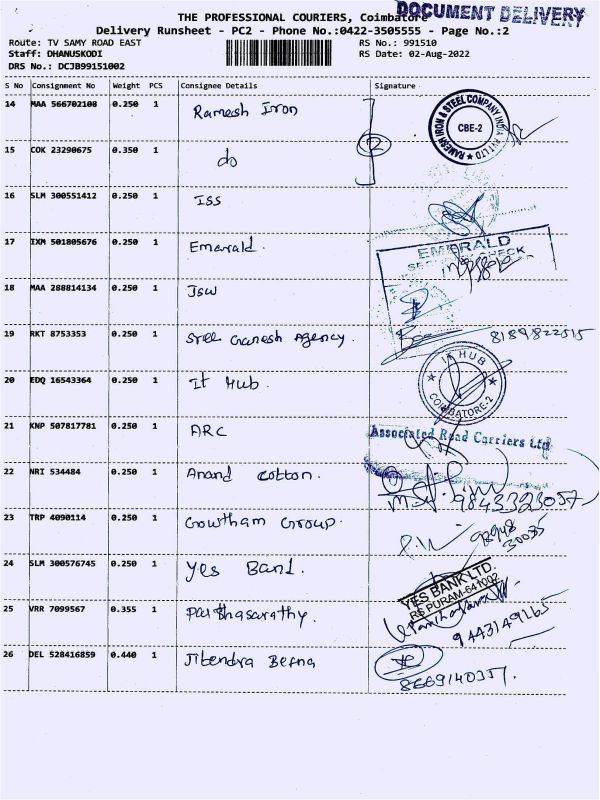 DOCUMENT DELIVERY
THE PROFESSIONAL COURIERS, Coimbatore
Delivery Runsheet - PC2 - Phone No.:0422-3505555 - Page No.:2
Route: TV SAMY ROAD EAST RS No.: 991510
Staff: DHANUSKODI RS Date: 02-Aug-2022
DRS No.: DCJB99151002
S No Consignment No Weight PCS Consignee Details Signature
14 MAA 566702108 0.250 1 Ramesh Iron
RAMESH IRON & STEEL COMPANY INDIA PVT LTD
CBE-2
15 COK 23290675 0.350 1 do
16 SLM 300551412 0.250 1 ISS
17 IXM 501805676 0.250 1 Emarald.
EMERALD
18 MAA 288814134 0.250 1 JSW
19 RKT 8753353 0.250 1 Sree Ganesh Agency. 8189822515
20 EDQ 16543364 0.250 1 It Hub.
IT HUB
COIMBATORE-2
21 KNP 507817781 0.250 1 ARC
Associated Road Carriers Ltd
22 NRI 534484 0.250 1 Anand cotton.
9843323057
23 TRP 4090114 0.250 1 Gowtham Group.
24 SLM 300576745 0.250 1 Yes Bank.
YES BANK LTD.
RS PURAM-641002
25 VRR 7099567 0.355 1 Parthasarathy.
9443149265
26 DEL 528416859 0.440 1 Jitendra Besna
8669140357.